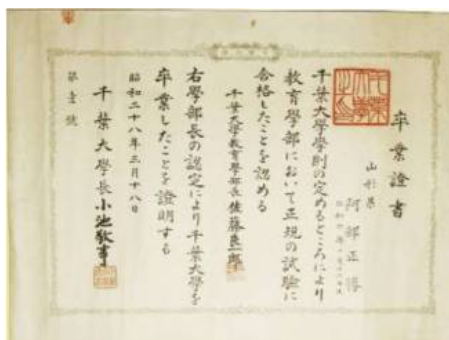 卒業證書
山形縣
阿部正勝
千葉大學學則の定めるところにより
教育學部において正規の試驗に
合格したことを認める
千葉大學教育學部長 佐藤良一郎
右學部長の認定により千葉大學を
卒業したことを證明する
昭和二十八年三月十八日
千葉大學長 小池敬事
第壹號